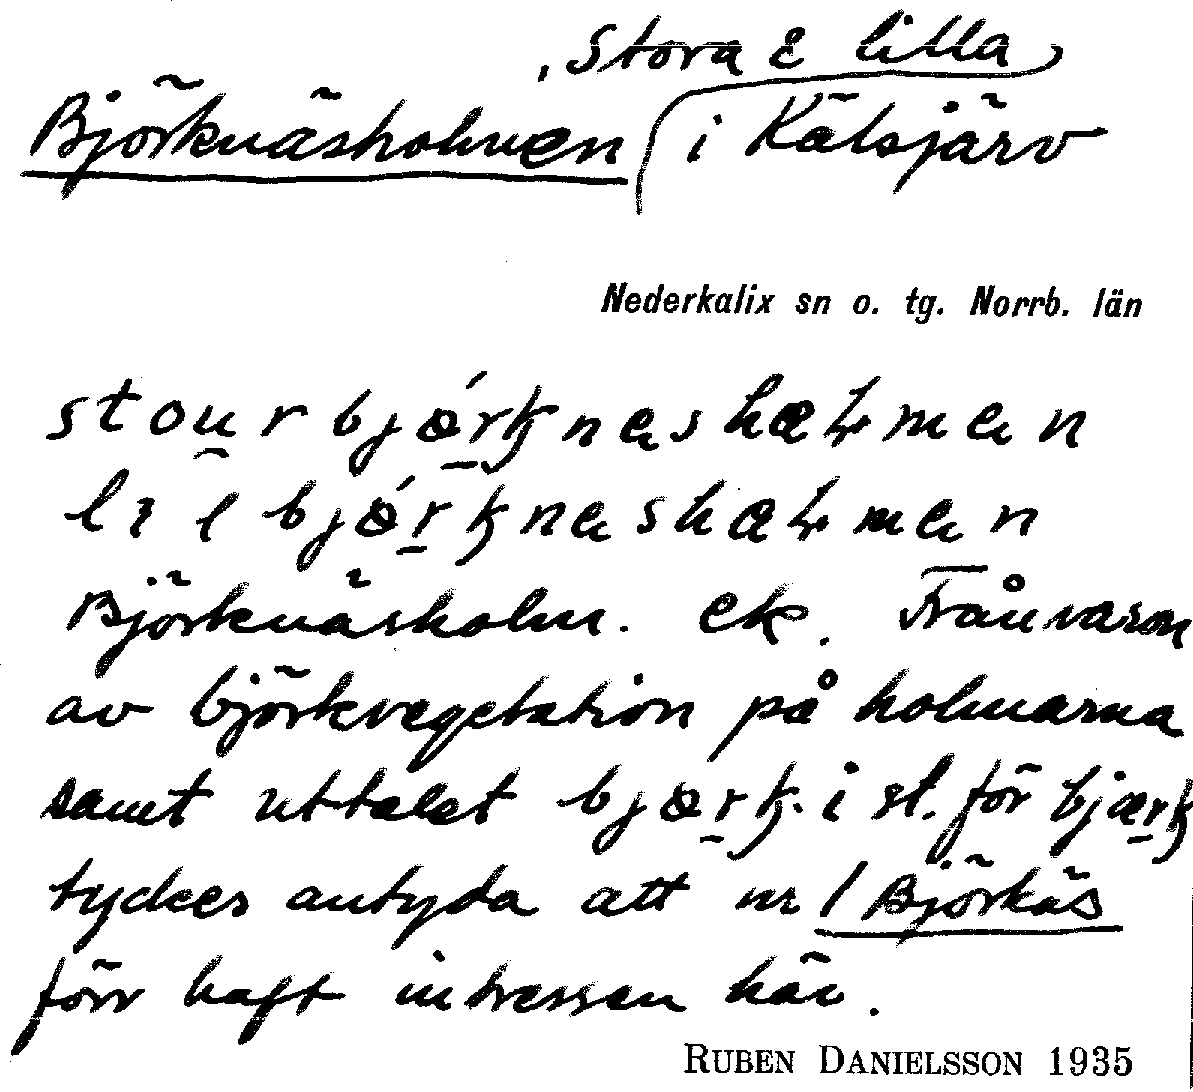 , Stora & lilla
Björknäsholmen i Kälsjärv
Nederkalix sn o. tg. Norrb. län
stou̯r bjǿrkneshælmen
lıl bjǿrkneshælmen
Björknäsholm. ek. Frånvaron
av björkvegetation på holmarna
samt uttalet bjørk i st. för bjærk
tycker antyda att nr 1 Björkäs
förr haft intressen här.
RUBEN DANIELSSON 1935